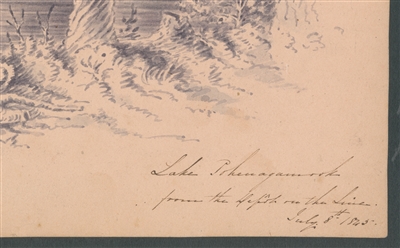 Lake Pohenagamook
from the Depôt on the Line.
July 8th 1843.